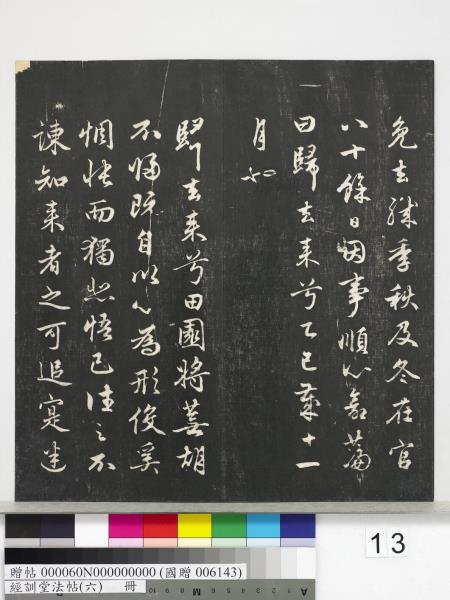 免去職季秋及冬在官
八十餘日因事順心命篇
曰歸去來兮乙巳歲十一
月也
歸去來兮田園將蕪胡
不歸既自以心為形役奚
惆悵而獨悲悟已往之不
諫知來者之可追寔迷
13
贈帖 000060N000000000 (國贈 006143)
經訓堂法帖(六) 冊